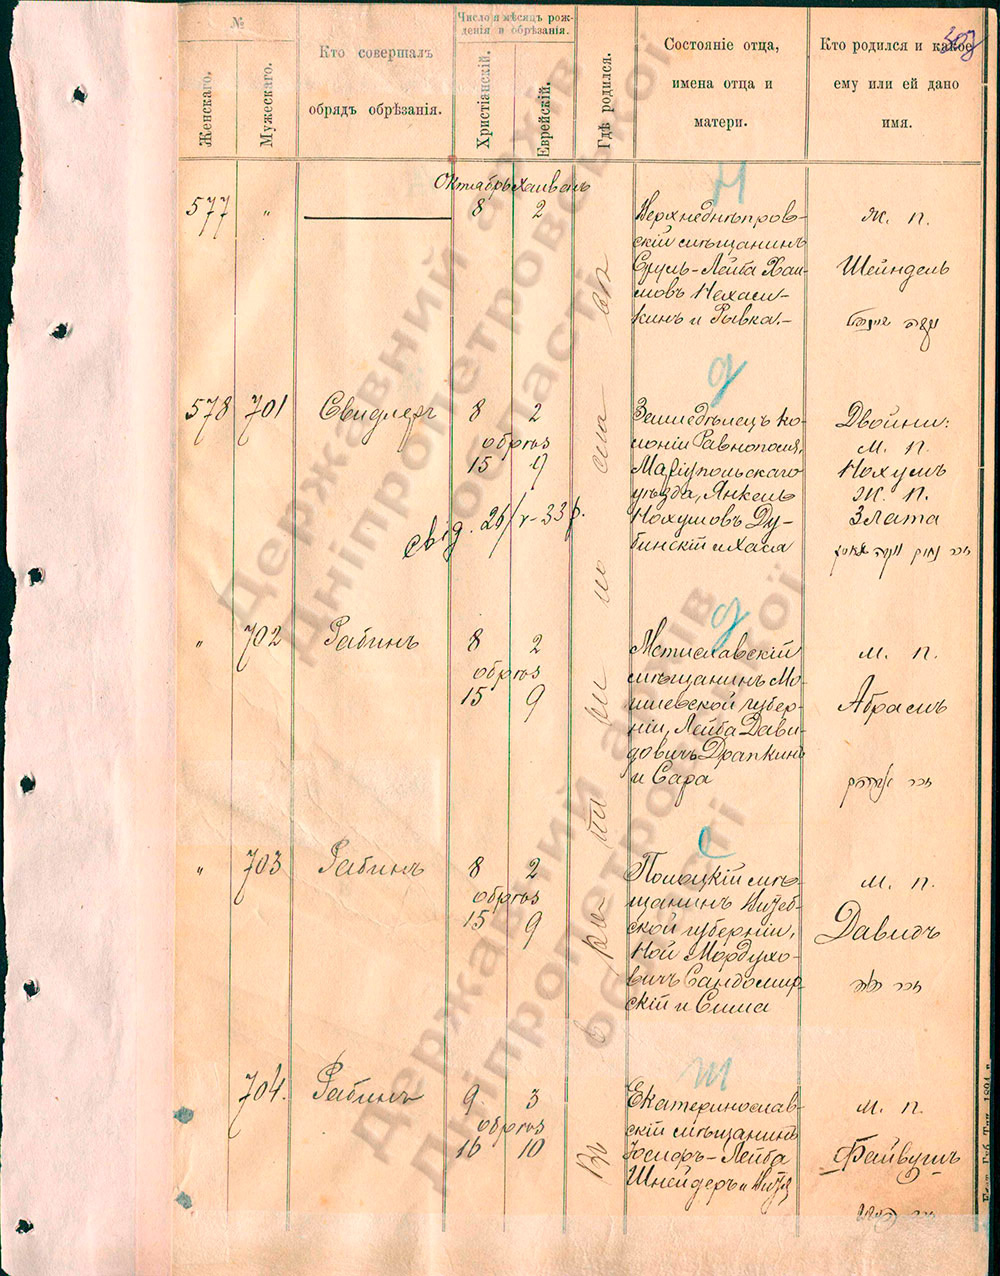 №
Женскаго.
Мужескаго.
Кто совершалъ
обрядъ обрѣзанія.
Число и мѣсяцъ рож-
денія и обрѣзанія.
Христіанскій.
Еврейскій.
Гдѣ родился.
Состояніе отца,
имена отца и
матери.
Кто родился и какое
ему или ей дано
имя.
Октябрь
577 „ 8 2
Верхнеднѣпров-
скій мѣщанинъ
Сруль-Лейба Хаи-
мовъ Нехаси-
кинъ и Рывка.-
Ж. п.
Шейндель
578 701 Свидлеръ 8 2
обрѣз
15 9
свид.
Земледѣлецъ ко-
лоніи Равнополя,
Маріупольскаго
уѣзда, Янкель
Нохумовъ Ду-
бинскій и Хася
Двойни:
М. п.
Нохумъ
Ж. п.
Злата
„ 702 Рабинъ 8 2
обрѣз
15 9
Мстиславскій
мѣщанинъ Мо-
гилевской губер-
ніи, Лейба Дави-
довичъ Драпкинъ
и Сара
м. п.
Абрамъ
„ 703 Рабинъ 8 2
обрѣз
15 9
Полоцкій мѣ-
щанинъ Витеб-
ской губерніи,
Ной Мордухо-
вичъ Сандомир-
скій и Сима
м. п.
Давидъ
704. Рабинъ 9 3
обрѣз
16 10
Екатеринослав-
скій мѣщанинъ
Іосифъ-Лейба
Шнейдеръ и
м. п.
Файвушъ
Державний архів
Дніпропетровської
області
Державний архів
Дніпропетровської
області